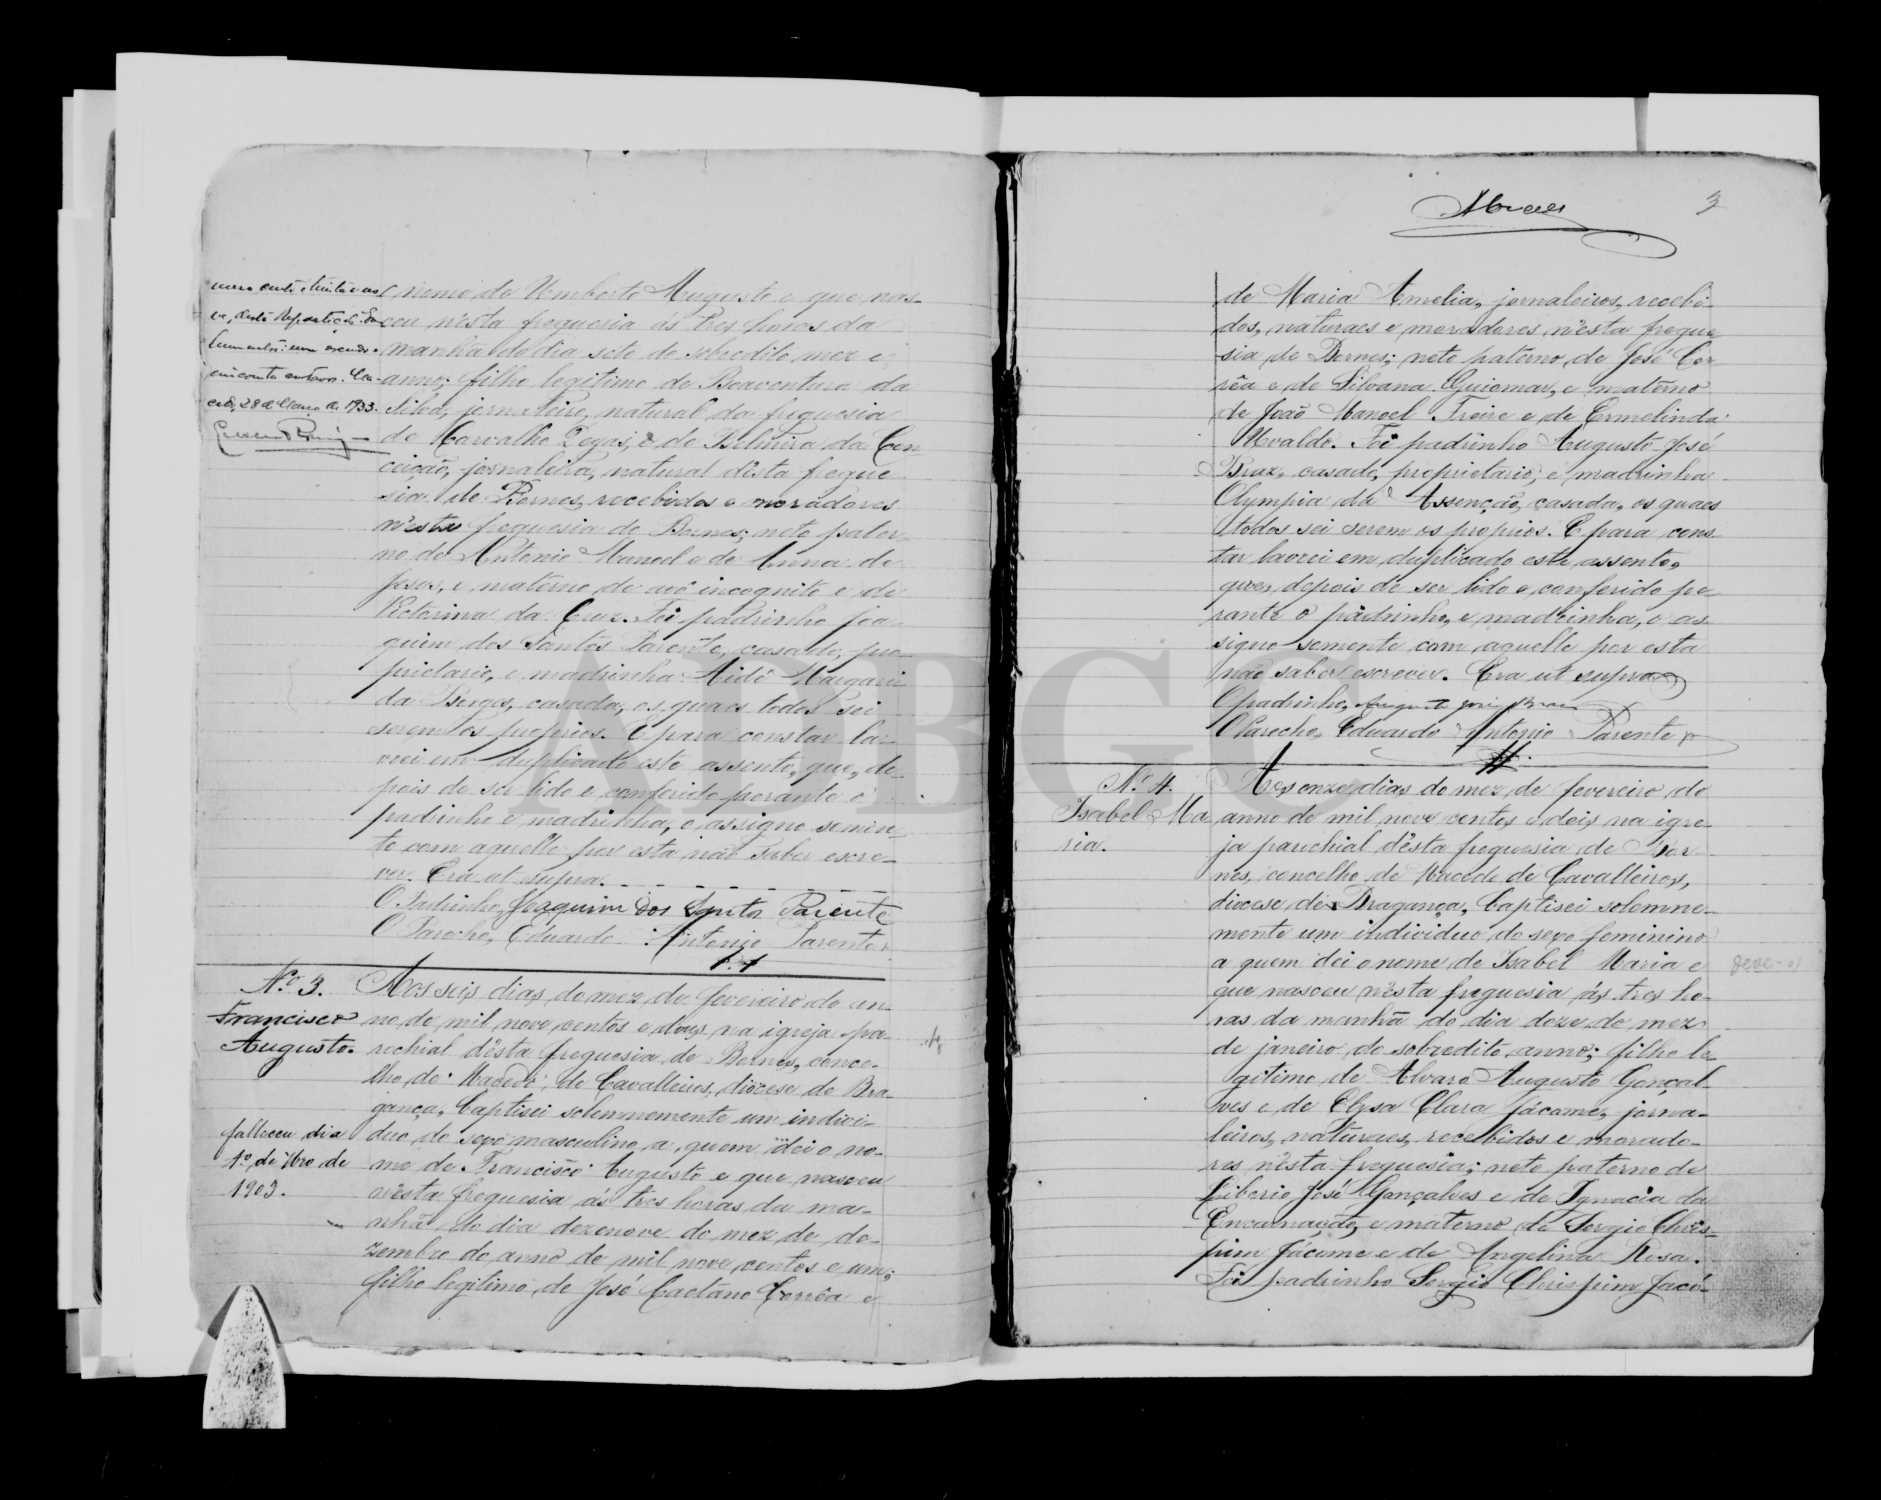 nome de Umberto Augusto e que nas-
ceu n'esta freguesia ás tres horas da
manhã do dia sete do sobredito mez e
anno; filho legitimo de Boaventura da
Silva, jornaleiro, natural da freguesia
de Carvalho de Egas, e de Belmira da Con
ceição, jornaleira, natural d'esta fregue
sia de Bornes, recebidos e moradores
n'esta freguesia de Bornes; neto pater-
no de Antonio Manoel e de Anna de
Jesus, e materno de avô incognito e de
Victorina da Cruz. Foi padrinho Joa-
quim dos Santos Parente, casado, pro-
prietario, e madrinha Margari
da Borges, casada, os quaes todos sei
serem os proprios. E para constar la-
vrei em duplicado este assento, que, de-
pois de ser lido e conferido perante o
padrinho e madrinha, o assigno sómen-
te com aquelle por esta não saber escre-
ver. Era ut supra.
O Padrinho, Joaquim dos Santos Parente
O Parocho, Eduardo Antonio Parente
28 de Março de 1933.
Nº 3.
Francisco
Augusto.
falleceu dia
1º de 9bro de
1903.
Aos seis dias do mez de fevereiro do an-
no de mil nove centos e dois na igreja pa-
rochial d'esta freguesia de Bornes, conce-
lho de Macedo de Cavalleiros, diocese de Bra-
gança, baptisei solemnemente um indivi-
duo do sexo masculino, a quem dei o no-
me de Francisco Augusto e que nasceu
n'esta freguesia ás tres horas da ma-
nhã do dia dezenove do mez de de-
zembro do anno de mil nove centos e um;
filho legitimo de José Caetano Corrêa e
Moraes
3
de Maria Amelia, jornaleiros, recebi-
dos, naturaes e moradores n'esta fregue-
sia de Bornes; neto paterno de José Cor
rêa e de Silvana Guiomar, e materno
de João Manoel Freire e de Ermelinda
Ubaldo. Foi padrinho Augusto José
Braz, casado, proprietario, e madrinha
Olympia da Assenção, casada, os quaes
todos sei serem os proprios. E para cons-
tar lavrei em duplicado este assento,
que, depois de ser lido e conferido pe-
rante o padrinho, e madrinha, o as-
signo somente com aquelle por esta
não saber escrever. Era ut supra
O padrinho, Augusto José Braz
O Parocho, Eduardo Antonio Parente
Nº 4.
Isabel Ma
ria.
Aos onze dias do mez de fevereiro do
anno de mil nove centos e dois na igre-
ja parochial d'esta freguesia de Bor-
nes, concelho de Macedo de Cavalleiros,
diocese de Bragança, baptisei solemne-
mente um individuo do sexo feminino
a quem dei o nome de Isabel Maria e
que nasceu n'esta freguesia ás tres ho-
ras da manhã do dia doze do mez
de janeiro do sobredito anno; filha le-
gitima de Alvaro Augusto Gonçal-
ves e de Elysa Clara Jácome, jorna-
leiros, naturaes, recebidos e morado-
res n'esta freguesia; neto paterno de
Liborio José Gonçalves e de Ignacia da
Encarnação, e materno de Sergio Chris-
pim Jácome e de Angelina Rosa.
Foi padrinho Sergio Chrispim Jáco-
ADBGC